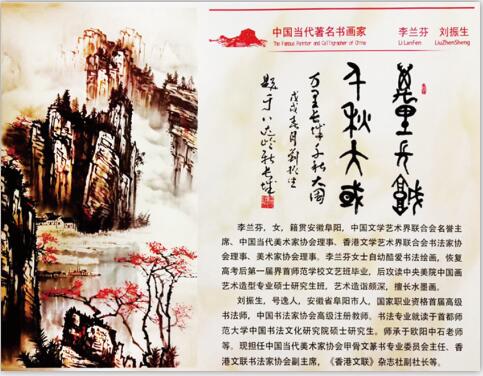 中国当代著名书画家
李兰芬 刘振生
The Famous Painter and Calligrapher of China
LiLanFen LiuZhenSheng
萬里長城
千秋大國
万里长城千秋大国
戊戌春月刘振生
题于八达岭新长城
李兰芬，女，籍贯安徽阜阳，中国文学艺术界联合会名誉主
席、中国当代美术家协会理事、香港文学艺术界联合会书法家协
会理事、美术家协会理事。李兰芬女士自幼酷爱书法绘画，恢复
高考后第一届界首师范学校文艺班毕业，后攻读中央美院中国画
艺术造型专业硕士研究生班，艺术造诣颇深，擅长水墨画。
刘振生，号逸人，安徽省阜阳市人，国家职业资格首届高级
书法师，中国书法家协会高级注册教师。书法专业就读于首都师
范大学中国书法文化研究院硕士研究生。师承于欧阳中石老师
等。现担任中国当代美术家协会甲骨文篆书专业委员会主任、香
港文联书法家协会副主席，《香港文联》杂志社副社长等。